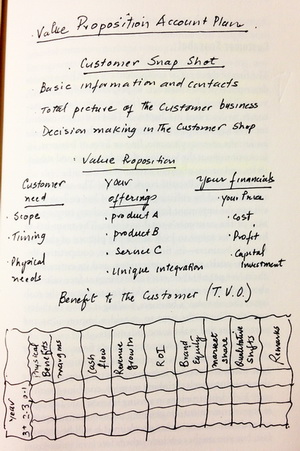 Value Proposition Account Plan.
. Customer Snap Shot
. Basic information and contacts
. Total picture of the Customer business
. Decision making in the Customer Shop
. Value Roposition
Customer need
. Scope
. Timing
. Physical needs
your offerings
. product A
. product B
. Service C
. Unique integration
your financials
. your Price
. Cost
. Profit
. Capital Investment
Benefit to the Customer (T.V.O.)
year
Physical Benefits
margins
Cash flow
Revenue growth
ROI
Brand Equity
market share
Qualitative shifts
Remarks